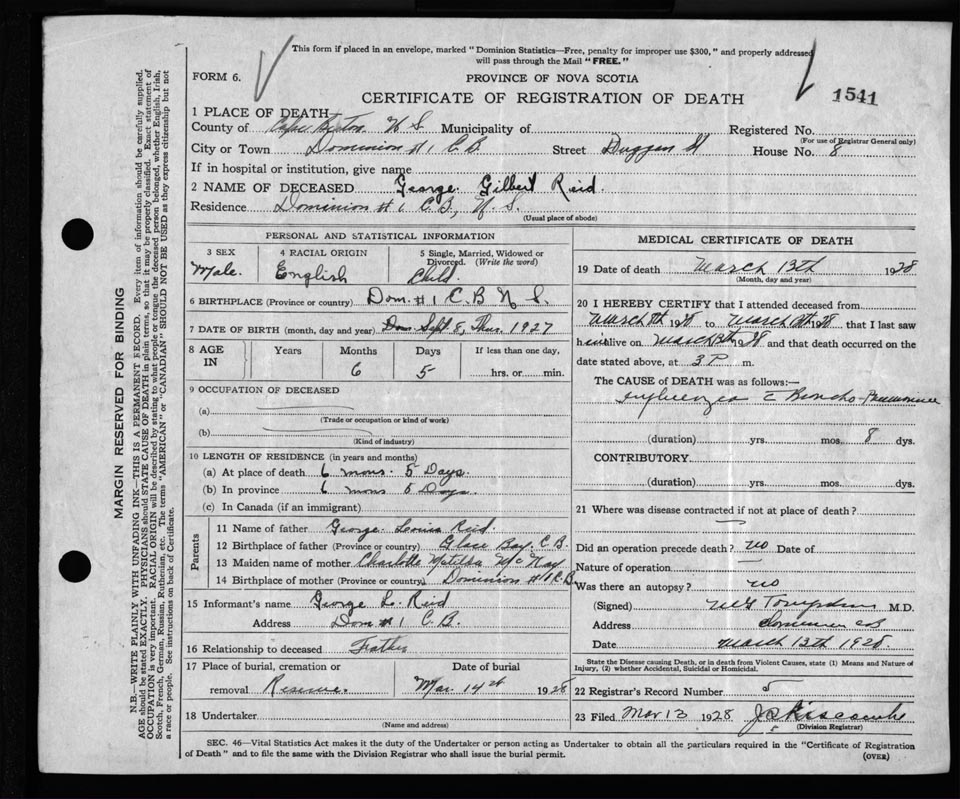 This form if placed in an envelope, marked "Dominion Statistics—Free, penalty for improper use $300," and properly addressed
will pass through the Mail "FREE."
FORM 6.
PROVINCE OF NOVA SCOTIA
CERTIFICATE OF REGISTRATION OF DEATH
1541
1 PLACE OF DEATH
County of Cape Breton N S Municipality of Registered No.
(For use of Registrar General only)
City or Town Dominion #1 C.B. Street Duggan St House No. 8
If in hospital or institution, give name
2 NAME OF DECEASED George Gilbert Reid.
Residence Dominion #1 C.B, N.S.
(Usual place of abode)
PERSONAL AND STATISTICAL INFORMATION
3 SEX 4 RACIAL ORIGIN 5 Single, Married, Widowed or
Divorced. (Write the word)
Male. English Child.
6 BIRTHPLACE (Province or country) Dom. #1 C.B N S.
7 DATE OF BIRTH (month, day and year) Dom Sept 8, Thur. 1927
8 AGE IN Years Months Days If less than one day,
6 5 hrs. or min.
9 OCCUPATION OF DECEASED
(a)
(Trade or occupation or kind of work)
(b)
(Kind of industry)
10 LENGTH OF RESIDENCE (in years and months)
(a) At place of death 6 mons. 5 Days.
(b) In province 6 mons 5 Days.
(c) In Canada (if an immigrant)
Parents
11 Name of father George Louis Reid.
12 Birthplace of father (Province or country) Glace Bay. C.B.
13 Maiden name of mother Charlotte Matilda
14 Birthplace of mother (Province or country) Dominion #1 C.B
15 Informant's name George L. Reid
Address Dom #1 C.B.
16 Relationship to deceased Father
17 Place of burial, cremation or Date of burial
removal Reserve. Mar. 14th 1928
18 Undertaker
(Name and address)
MEDICAL CERTIFICATE OF DEATH
19 Date of death March 13th 1928
(Month, day and year)
20 I HEREBY CERTIFY that I attended deceased from
March 192 to March 192 that I last saw
h alive on March 13th 28 and that death occurred on the
date stated above, at 3 P m.
The CAUSE of DEATH was as follows:—
Influenza c Broncho-Pneumonia
(duration) yrs. mos. 8 dys.
CONTRIBUTORY
(duration) yrs. mos. dys.
21 Where was disease contracted if not at place of death?
Did an operation precede death? no Date of
Nature of operation
Was there an autopsy? no
(Signed) M.D.
Address
Date March 13th 1928.
State the Disease causing Death, or in death from Violent Causes, state (1) Means and Nature of
Injury, (2) whether Accidental, Suicidal or Homicidal.
22 Registrar's Record Number 5
23 Filed Mar 13 1928
(Division Registrar)
SEC. 46—Vital Statistics Act makes it the duty of the Undertaker or person acting as Undertaker to obtain all the particulars required in the "Certificate of Registration
of Death" and to file the same with the Division Registrar who shall issue the burial permit.
(OVER)
MARGIN RESERVED FOR BINDING
N.B.—WRITE PLAINLY WITH UNFADING INK—THIS IS A PERMANENT RECORD. Every item of information should be carefully supplied.
AGE should be stated EXACTLY. PHYSICIANS should STATE CAUSE OF DEATH in plain terms, so that it may be properly classified. Exact statement of
OCCUPATION is very important. RACIAL ORIGIN will be described by stating to what people or tongue the deceased person belonged, whether English, Irish,
Scotch, French, German, Russian, Ruthenian, etc. The terms "AMERICAN" or "CANADIAN" SHOULD NOT BE USED as they express citizenship but not
a race or people. See instructions on back of Certificate.